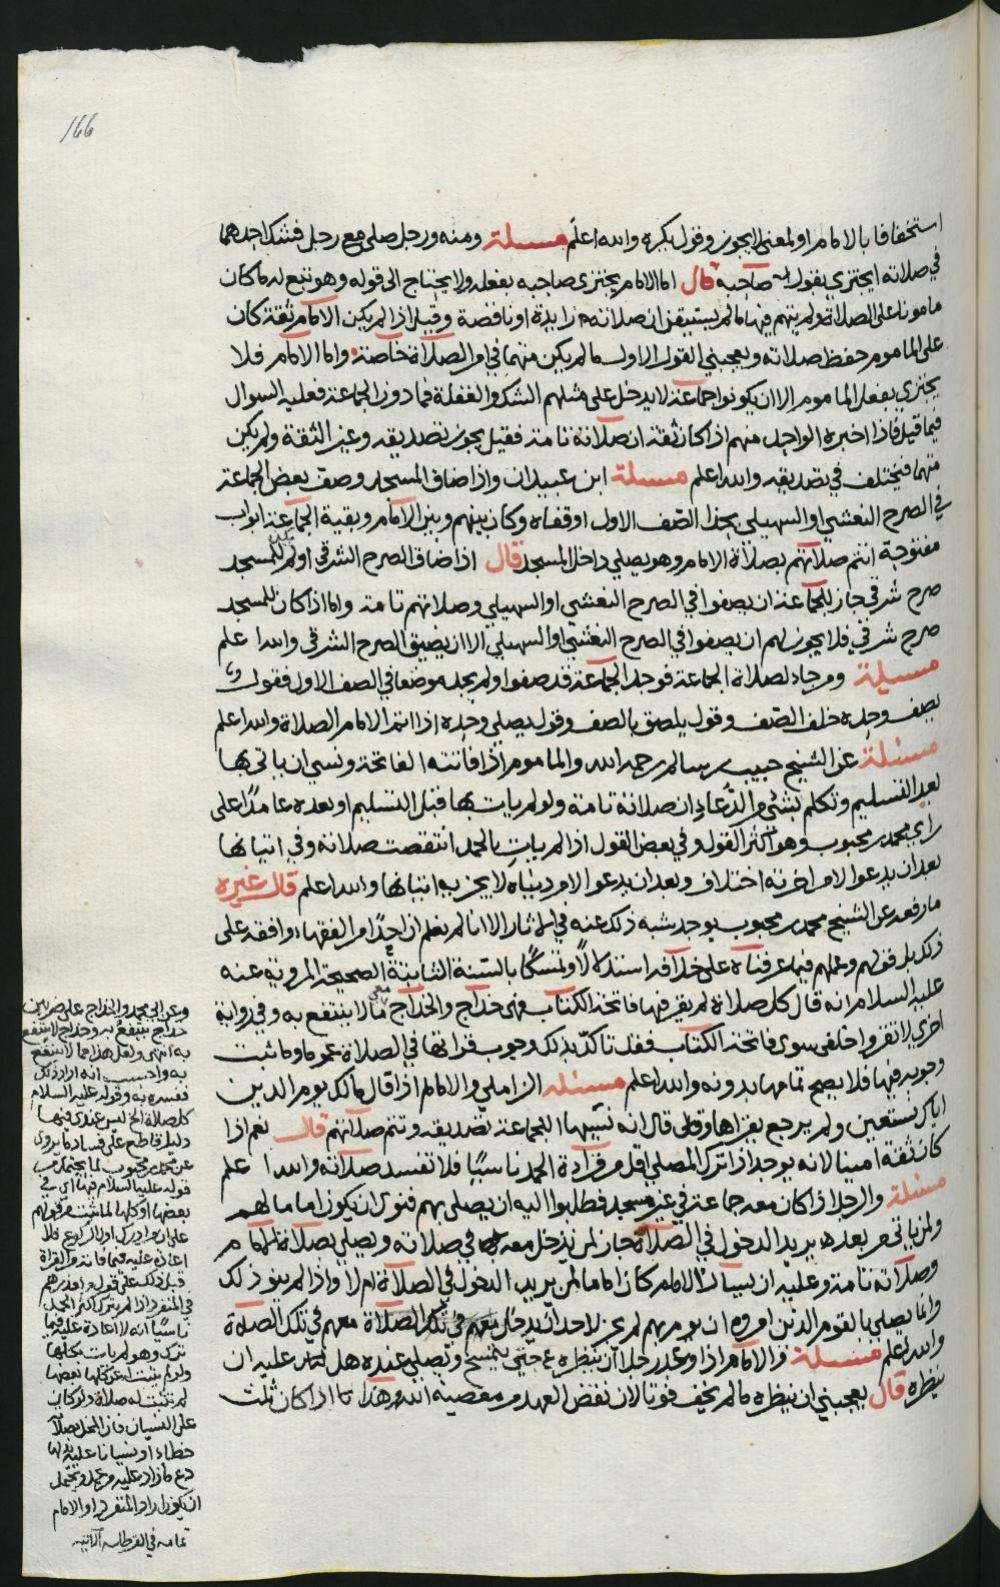 166
استخفافا بالامام او لمعنى لا يجوز وقول يكره والله اعلم مسئلة ومنه ورجل صلى مع رجل فشك احدهما
في صلاته ايجتزي بقول صاحبه قال اما الامام يجتزي صاحبه بفعله ولا يحتاج الى قوله وهو تبع له ما كان
مامونا على الصلاة ولم يتهم فيها ما لم يستيقن ان صلاته زايدة او ناقصة وقيل اذا لم يكن الامام ثقة كان
على الماموم حفظ صلاته ويعجبني القول الاول ما لم يكن متهما في امر الصلاة خاصة واما الامام فلا
يجتزي بفعل الماموم الا ان يكونوا جماعة لا يدخل على مثلهم الشك والغفلة فما دون الجماعة فعليه السوال
فيما قيل فاذا اخبره الواحد منهم اذا كان ثقة ان صلاته تامة فقيل يجوز تصديقه وغير الثقة ولم يكن
متهما فيختلف في تصديقه والله اعلم مسئلة ابن عبيدان واذا ضاق المسجد وصف بعض الجماعة
في الصرح النعشي او السهيلي بحذا الصف الاول او قفاه وكان بينهم وبين الامام وبقية الجماعة ابواب
مفتوحة اتتم صلاتهم بصلاة الامام وهو يصلي داخل المسجد قال اذا ضاق الصرح الشرقي او لم يكن للمسجد
صرح شرقي جاز للجماعة ان يصفوا في الصرح النعشي او السهيلي وصلاتهم تامة واما اذا كان للمسجد
صرح شرقي فلا يجوز لهم ان يصفوا في الصرح النعشي او السهيلي الا ان يضيق الصرح الشرقي والله اعلم
مسيلة ومن جاء لصلاة الجماعة فوجد الجماعة قد صفوا ولم يجد موضعا في الصف الاول فقول
يصف وحده خلف الصف وقول يلصق بالصف وقول يصلي وحده اذا اتم الامام الصلاة والله اعلم
مسئلة عن الشيخ حبيب بن سالم رحمه الله والماموم اذا فاتته الفاتحة ونسي ان ياتي بها
بعد التسليم وتكلم بشيء من الدعاء ان صلاته تامة ولو لم يات بها قبل التسليم او بعده عامدا على
راي محمد بن محبوب وهو اكثر القول وفي بعض القول اذا لم يات بالحمد انتقضت صلاته وفي اتيانها
بعد ان يدعو لامر اخرته اختلاف وبعد ان يدعو لامر دنياه لا يجزيه اتيانها والله اعلم قال غيره
ما رفعه عن الشيخ محمد بن محبوب يوجد شبه ذلك عنه في الاثار الا انا لم نعلم ان احدا من الفقهاء وافقه على
ذلك بل قولهم وعملهم فيما عرفناه على خلافه استدلالا وتمسكا بالسنة الثابتة الصحيحة المروية عنه
عليه السلام انه قال كل صلاة لم يقرا فيها فاتحة الكتاب فهي خداج والخداج معنى ما لا ينتفع به وفي رواية
اخرى لا تقروا خلفي سوى فاتحة الكتاب فقد تاكد بذلك وجوب قراتها في الصلاة عموما وما ثبت
وجوبه فيها فلا يصح تمامها بدونه والله اعلم مسئله الزاملي والامام اذا قال مالك يوم الدين
اياك نستعين ولم يرجع يقراها وقال انه نسيها اللجماعة تصديقه وتتم صلاتهم قال نعم اذا
كان ثقة امينا لانه يوجد اذا ترك المصلي اقل من قراءة الحمد ناسيا فلا تفسد صلاته والله اعلم
مسئلة والرجل اذا كان معه جماعة في غير مسجد فطلبوا اليه ان يصلي بهم فنوى ان يكون اماما لهم
ولمن ياتي من بعدهم يريد الدخول في الصلاة جاز لمن يدخل معه في صلاته ويصلي بصلاة الامام
وصلاته تامة وعليه ان يسال الامام كان اماما لمن يريد الدخول في الصلاة ام لا واذا لم ينو ذلك
وانما يصلي بالقوم الذين امروه ان يومهم لم يجز لاحد ان يدخل معهم في تلك الصلاة معهم في تلك الصلاة
والله اعلم مسئلة والامام اذا وعد رجلا ان ينتظره حتى يتمسح ويصلي عنده هل عليه ان
ينتظره قال يعجبني ان ينتظره ما لم يخف فوتا لان نقض العهد من معصية الله وهذا ما اذا كان ثلث
وعن ابي محمد والخداج على ضربين
خداج ينتفع به وخداج لا ينتفع
به انتهى ولعل هذا مما لا ينتفع
به واحسب انه اراد ذلك
ففسره به وقوله عليه السلام
كل صلاة الخ ليس عندي فيها
دليل قاطع على فساد ما يروى
عن محمد بن محبوب لما يحتمل في
قوله عليه السلام فيها اي في
بعضها او كلها لما ثبت من قولهم
على ان من ادرك الركوع فلا
اعادة عليه فيما فاته والقراة
قبل ذلك على قول بعضهم
في المنفرد اذا لم يترك اكثر الحمد
ناسيا انه لا اعادة عليه فيما
ترك وهو لم يات بكلها
ولو لم يثبت له عن كلها بعضها
لم تثبت له صلاة ولو كان
على النسيان فان المخل بصلاته
خطاء او نسيانا عليه بدلها
دع ما زاد عليه وعمل ويحتمل
ان يكون اراد المنفرد او الامام
تمامه في القرطاسه الاتية